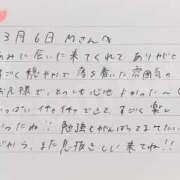 3月6日 Mさんへ
みに会いに来てくれて ありがと
すごく 穏やかで 落ち着いた 雰囲気の
お兄様で、とっても 心地 よかった〜
っぱい イチャイチャできて、すごく 楽し
ったね!! 勉強もがんばってますたい
だから、また 息抜きしに 来てね!!